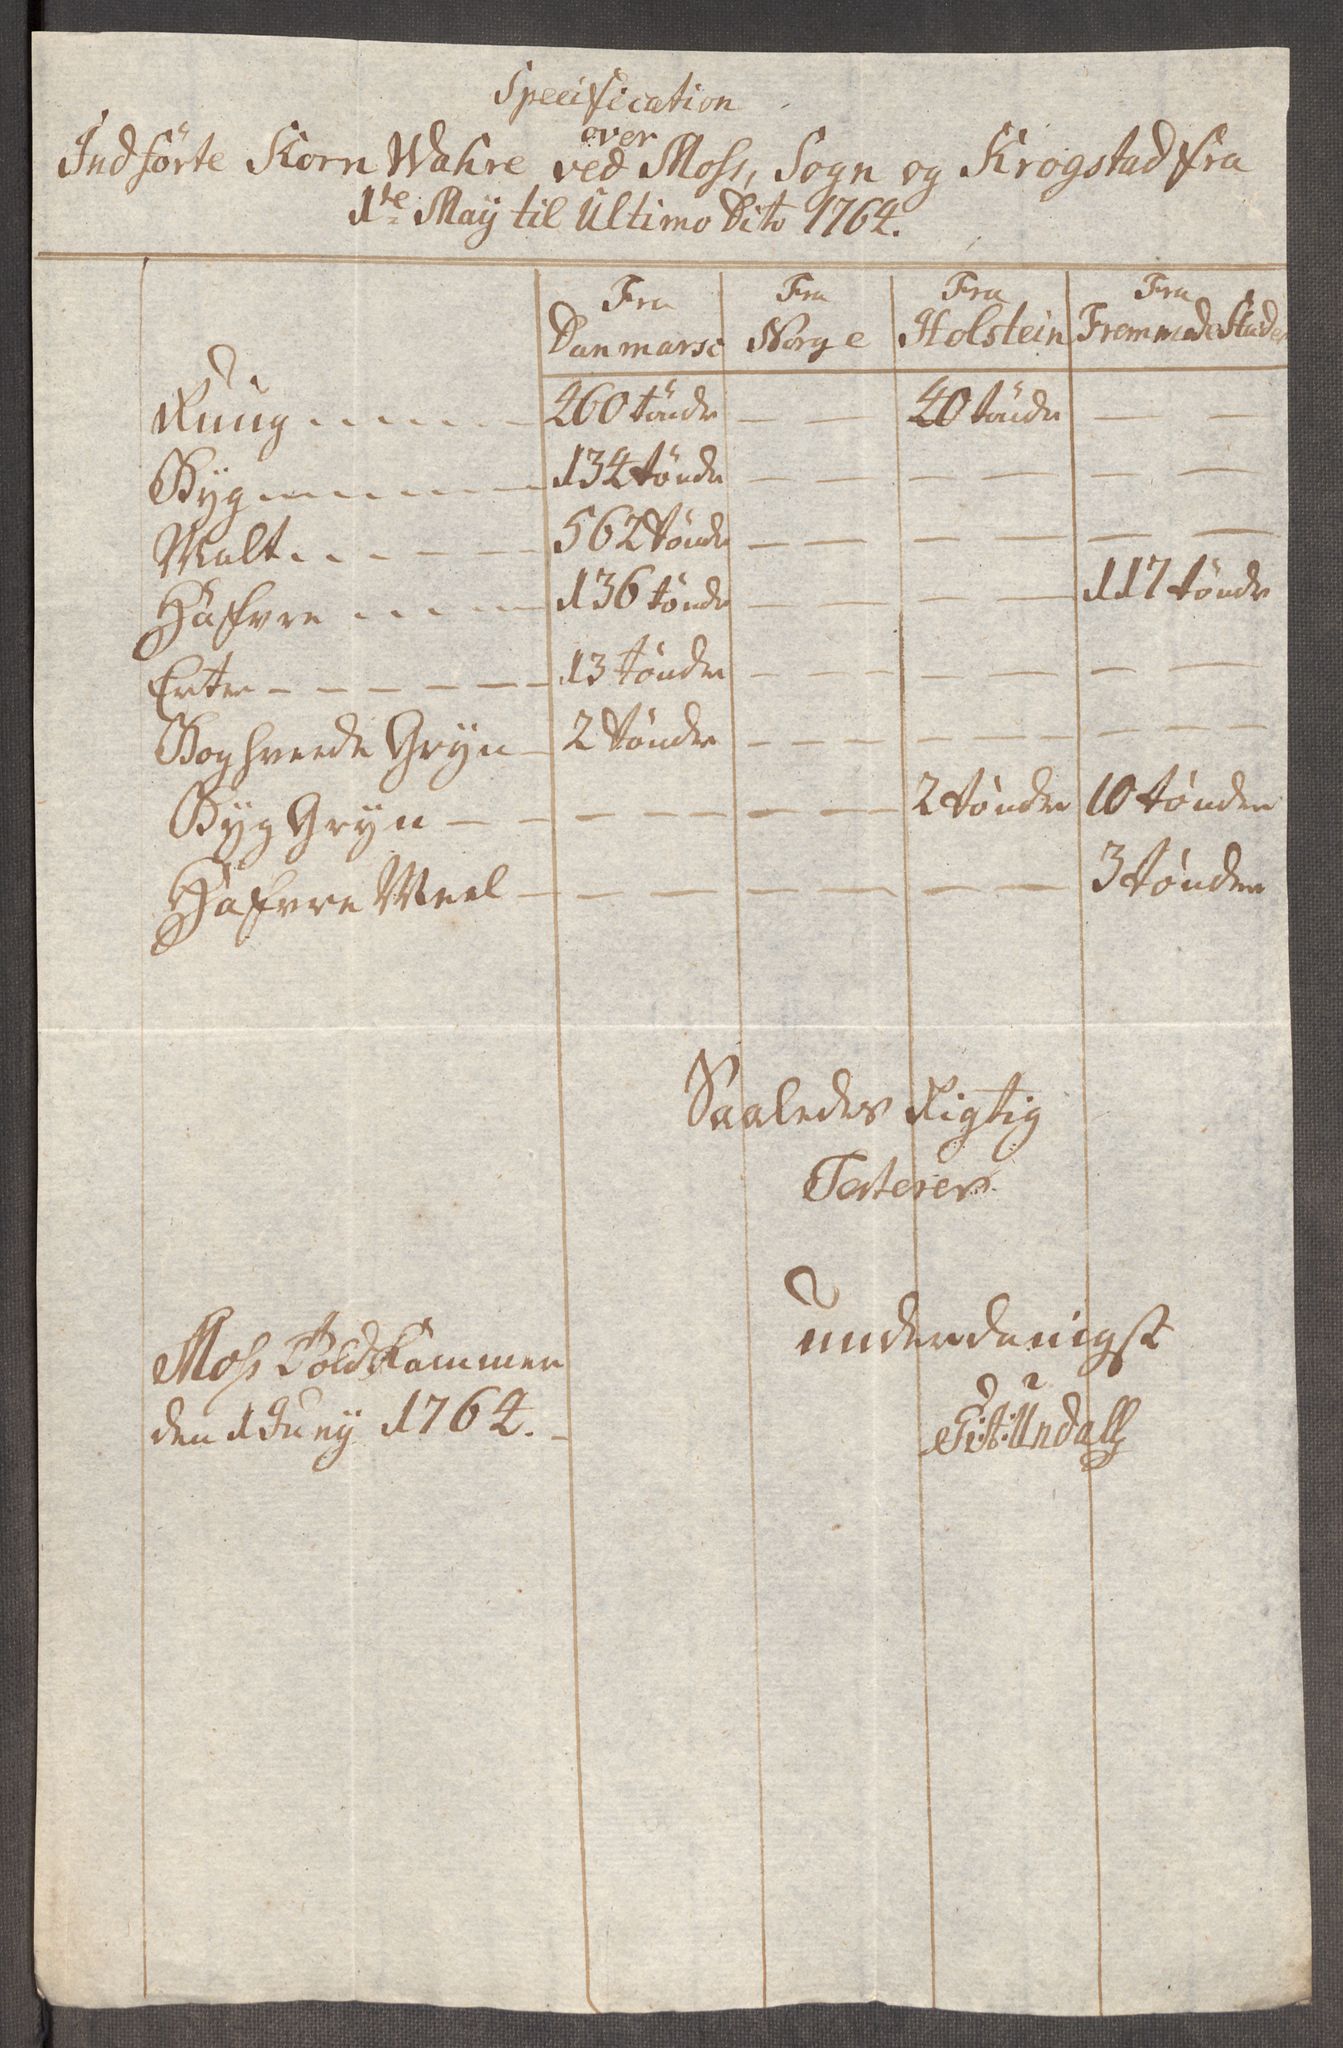 Specification
over
Indførte Korn Wahre ved Moss, Sogn og Krogstad fra
1te May til Ultimo Dito 1764.
Fra Danmarc Fra Norge Fra Holstein Fra Fremmede Stæder
Ruug 460 tönder — — 40 tönder — —
Byg 134 tønder — — — — — —
Malt 562 tønder — — — — — —
Hafvre 136 tønder — — — — 117 tønder
Erter 13 tønder — — — — — —
Boghvede Gryn 2 tønder — — — — — —
Byg Gryn — — — — 2 tønder 10 tønder
Hafvre Meel — — — — — — 3 tønder
Saaledes Rigtig
Testerer
underdanigst
Moss Told Kammer
den 1 Juny 1764.
Undall